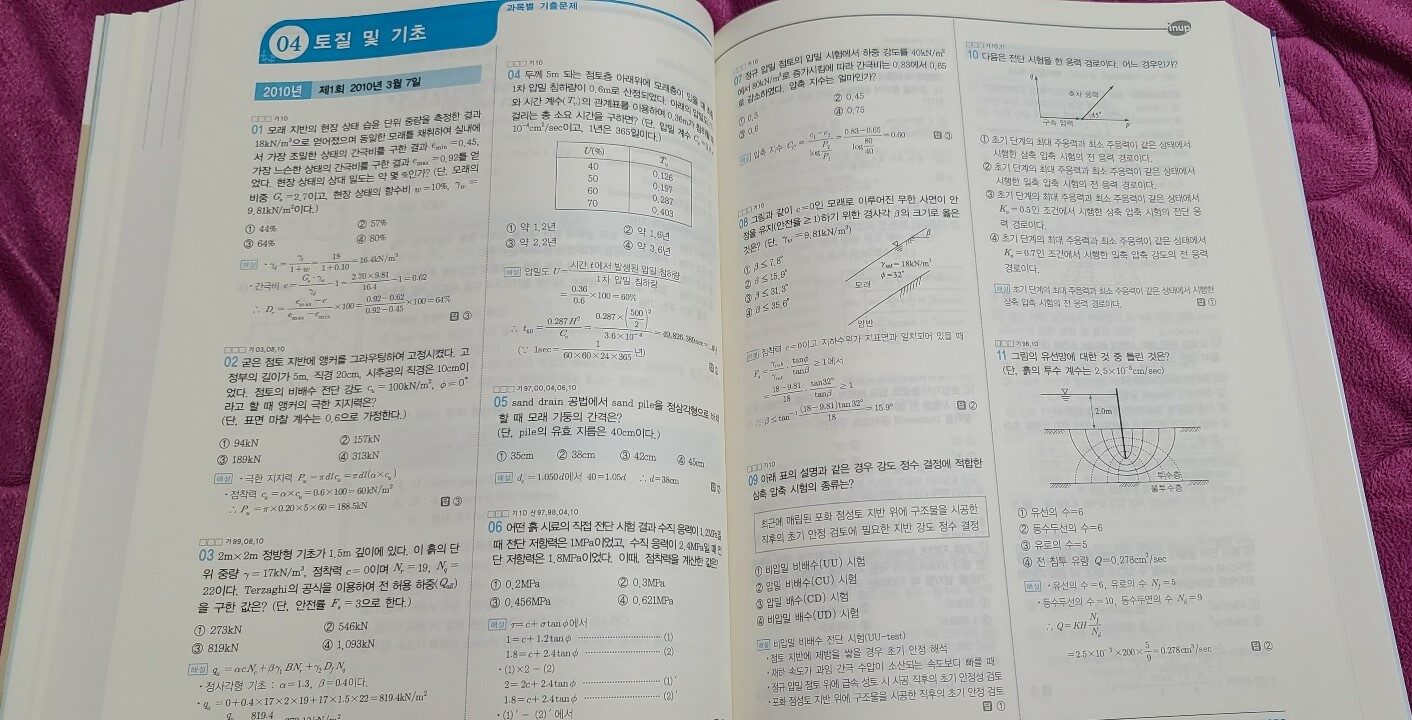 과목별 기출문제
04 토질 및 기초
2010년 제1회 2010년 3월 7일
□□□ 기10
01 모래 지반의 현장 상태 습윤 단위 중량을 측정한 결과
18kN/m³으로 얻어졌으며 동일한 모래를 채취하여 실내에
서 가장 조밀한 상태의 간극비를 구한 결과 e_min = 0.45,
가장 느슨한 상태의 간극비를 구한 결과 e_max = 0.92를 얻
었다. 현장 상태의 상대 밀도는 약 몇 %인가? (단, 모래의
비중 G_s = 2.7이고, 현장 상태의 함수비 w = 10%, γ_w =
9.81kN/m³이다.)
① 44% ② 57%
③ 64% ④ 80%
해설 · γ_d = γ_t/(1+w) = 18/(1+0.10) = 16.4kN/m³
· 간극비 e = G_s·γ_w/γ_d − 1 = 2.70×9.81/16.4 − 1 = 0.62
∴ D_r = (e_max − e)/(e_max − e_min) × 100 = (0.92−0.62)/(0.92−0.45) × 100 = 64%
답 ③
□□□ 기03,08,10
02 굳은 점토 지반에 앵커를 그라우팅하여 고정시켰다. 고
정부의 길이가 5m, 직경 20cm, 시추공의 직경은 10cm이
었다. 점토의 비배수 전단 강도 c_u = 100kN/m², φ = 0°
라고 할 때 앵커의 극한 지지력은?
(단, 표면 마찰 계수는 0.6으로 가정한다.)
① 94kN ② 157kN
③ 189kN ④ 313kN
해설 · 극한 지지력 P_u = πdlc_a = πdl(α×c_u)
· 점착력 c_a = α×c_u = 0.6×100 = 60kN/m²
∴ P_u = π×0.20×5×60 = 188.5kN 답 ③
□□□ 기99,08,10
03 2m×2m 정방형 기초가 1.5m 깊이에 있다. 이 흙의 단
위 중량 γ = 17kN/m³, 점착력 c = 0이며 N_r = 19, N_q =
22이다. Terzaghi의 공식을 이용하여 전 허용 하중(Q_all)
을 구한 값은? (단, 안전률 F_s = 3으로 한다.)
① 273kN ② 546kN
③ 819kN ④ 1,093kN
해설 q_u = αcN_c + βγ₁BN_r + γ₂D_fN_q
· 정사각형 기초 : α = 1.3, β = 0.4이다.
· q_u = 0 + 0.4×17×2×19 + 17×1.5×22 = 819.4kN/m²
□□□ 기10
04 두께 5m 되는 점토층 아래위에 모래층이 있을 때
1차 압밀 침하량이 0.6m로 산정되었다. 아래의 압밀도
와 시간 계수(T_v)의 관계표를 이용하여 0.36m가
걸리는 총 소요 시간을 구하면? (단, 압밀 계수
10⁻⁴cm²/sec이고, 1년은 365일이다.)
U(%) T_v
40 0.126
50 0.197
60 0.287
70 0.403
① 약 1.2년 ② 약 1.6년
③ 약 2.2년 ④ 약 3.6년
해설 압밀도 U = 시간 t에서 발생된 압밀 침하량/1차 압밀 침하량
= 0.36/0.6 × 100 = 60%
∴ t₆₀ = 0.287H²/C_v = 0.287×(500/2)²/3.6×10⁻⁴ = 49,826,389sec
(∵ 1sec = 1/(60×60×24×365) 년)
□□□ 기97,00,04,06,10
05 sand drain 공법에서 sand pile을 정삼각형으로
할 때 모래 기둥의 간격은?
(단, pile의 유효 지름은 40cm이다.)
① 35cm ② 38cm ③ 42cm ④ 45cm
해설 d_e = 1.050d에서 40 = 1.05d ∴ d = 38cm
□□□ 기10 산97,98,04,10
06 어떤 흙 시료의 직접 전단 시험 결과 수직 응력이 1.2MPa일
때 전단 저항력은 1MPa이었고, 수직 응력이 2.4MPa일 때
단 저항력은 1.8MPa이었다. 이때, 점착력을 계산한 값은?
① 0.2MPa ② 0.3MPa
③ 0.456MPa ④ 0.621MPa
해설 τ = c + σtanφ에서
1 = c + 1.2tanφ (1)
1.8 = c + 2.4tanφ (2)
· (1)×2 − (2)
2 = 2c + 2.4tanφ (1)′
1.8 = c + 2.4tanφ (2)′
· (1)′ − (2)′ 에서
□□□ 기10
07 정규 압밀 점토의 압밀 시험에서 하중 강도를 40kN/m²
에서 80kN/m²로 증가시킴에 따라 간극비는 0.83에서 0.65
로 감소하였다. 압축 지수는 얼마인가?
① 0.3 ② 0.45
③ 0.6 ④ 0.75
해설 압축 지수 C_c = (e₁−e₂)/log(P₂/P₁) = (0.83−0.65)/log(80/40) = 0.60 답 ③
□□□ 기10
08 그림과 같이 c = 0인 모래로 이루어진 무한 사면이 안
정을 유지(안전율 ≥ 1)하기 위한 경사각 β의 크기로 옳은
것은? (단, γ_w = 9.81kN/m³)
① β ≤ 7.8°
② β ≤ 15.9°
③ β ≤ 31.3°
④ β ≤ 35.6°
β
γ_sat = 18kN/m³
φ = 32°
모래
암반
해설 점착력 c = 0이고 지하수위가 지표면과 일치되어 있을 때
F_s = γ_sub/γ_sat · tanφ/tanβ ≥ 1에서
= (18−9.81)/18 · tan32°/tanβ ≥ 1
∴ β ≤ tan⁻¹((18−9.81)tan32°/18) = 15.9° 답 ②
□□□ 기10
09 아래 표의 설명과 같은 경우 강도 정수 결정에 적합한
삼축 압축 시험의 종류는?
최근에 매립된 포화 점성토 지반 위에 구조물을 시공한
직후의 초기 안정 검토에 필요한 지반 강도 정수 결정
① 비압밀 비배수(UU) 시험
② 압밀 비배수(CU) 시험
③ 압밀 배수(CD) 시험
④ 비압밀 배수(UD) 시험
해설 비압밀 비배수 전단 시험(UU-test)
· 점토 지반에 제방을 쌓을 경우 초기 안정 해석
· 재하 속도가 과잉 간극 수압이 소산되는 속도보다 빠를 때
· 정규 압밀 점토 위에 급속 성토 시 시공 직후의 초기 안정성 검토
· 포화 점성토 지반 위에 구조물을 시공한 직후의 초기 안정 검토
답 ①
inup
□□□ 기10,11
10 다음은 전단 시험을 한 응력 경로이다. 어느 경우인가?
q
축차 응력
45°
구속 압력 p
① 초기 단계의 최대 주응력과 최소 주응력이 같은 상태에서
시행한 삼축 압축 시험의 전 응력 경로이다.
② 초기 단계의 최대 주응력과 최소 주응력이 같은 상태에서
시행한 일축 압축 시험의 전 응력 경로이다.
③ 초기 단계의 최대 주응력과 최소 주응력이 같은 상태에서
K_o = 0.5인 조건에서 시행한 삼축 압축 시험의 전단 응
력 경로이다.
④ 초기 단계의 최대 주응력과 최소 주응력이 같은 상태에서
K_o = 0.7인 조건에서 시행한 일축 압축 강도의 전 응력
경로이다.
해설 초기 단계의 최대 주응력과 최소 주응력이 같은 상태에서 시행한
삼축 압축 시험의 전 응력 경로이다. 답 ①
□□□ 기98,10
11 그림의 유선망에 대한 것 중 틀린 것은?
(단, 흙의 투수 계수는 2.5×10⁻³cm/sec)
2.0m
투수층
불투수층
① 유선의 수=6
② 등수두선의 수=6
③ 유로의 수=5
④ 전 침투 유량 Q=0.278cm³/sec
해설 · 유선의 수=6, 유로의 수 N_f = 5
· 등수두선의 수=10, 등수두면의 수 N_d = 9
∴ Q = KH N_f/N_d
= 2.5×10⁻³×200×5/9 = 0.278cm³/sec 답 ②